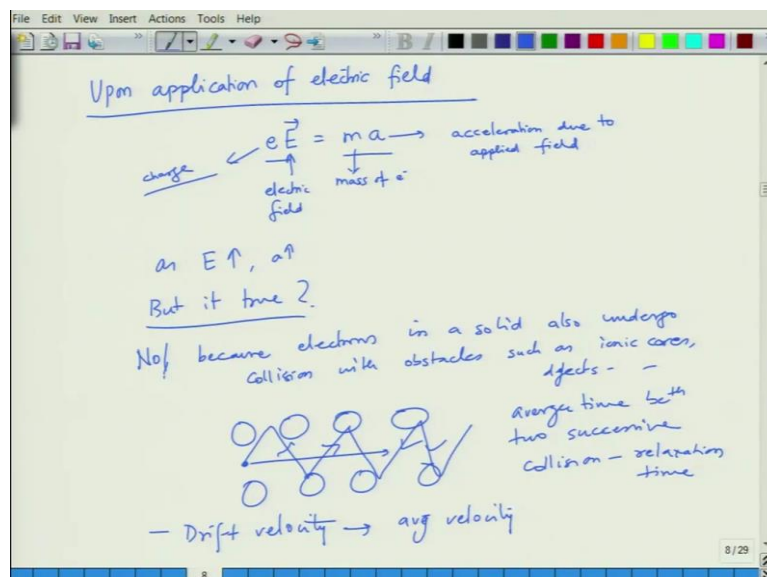 File Edit View Insert Actions Tools Help
Upon application of electric field
e E = m a → acceleration due to
applied field
charge
electric
field
mass of e⁻
as E↑, a↑
But it true ?
No, because electrons in a solid also undergo
collision with obstacles such as ionic cores,
defects - -
average time betn
two successive
collision – relaxation
time
– Drift velocity → avg velocity
8/29
8